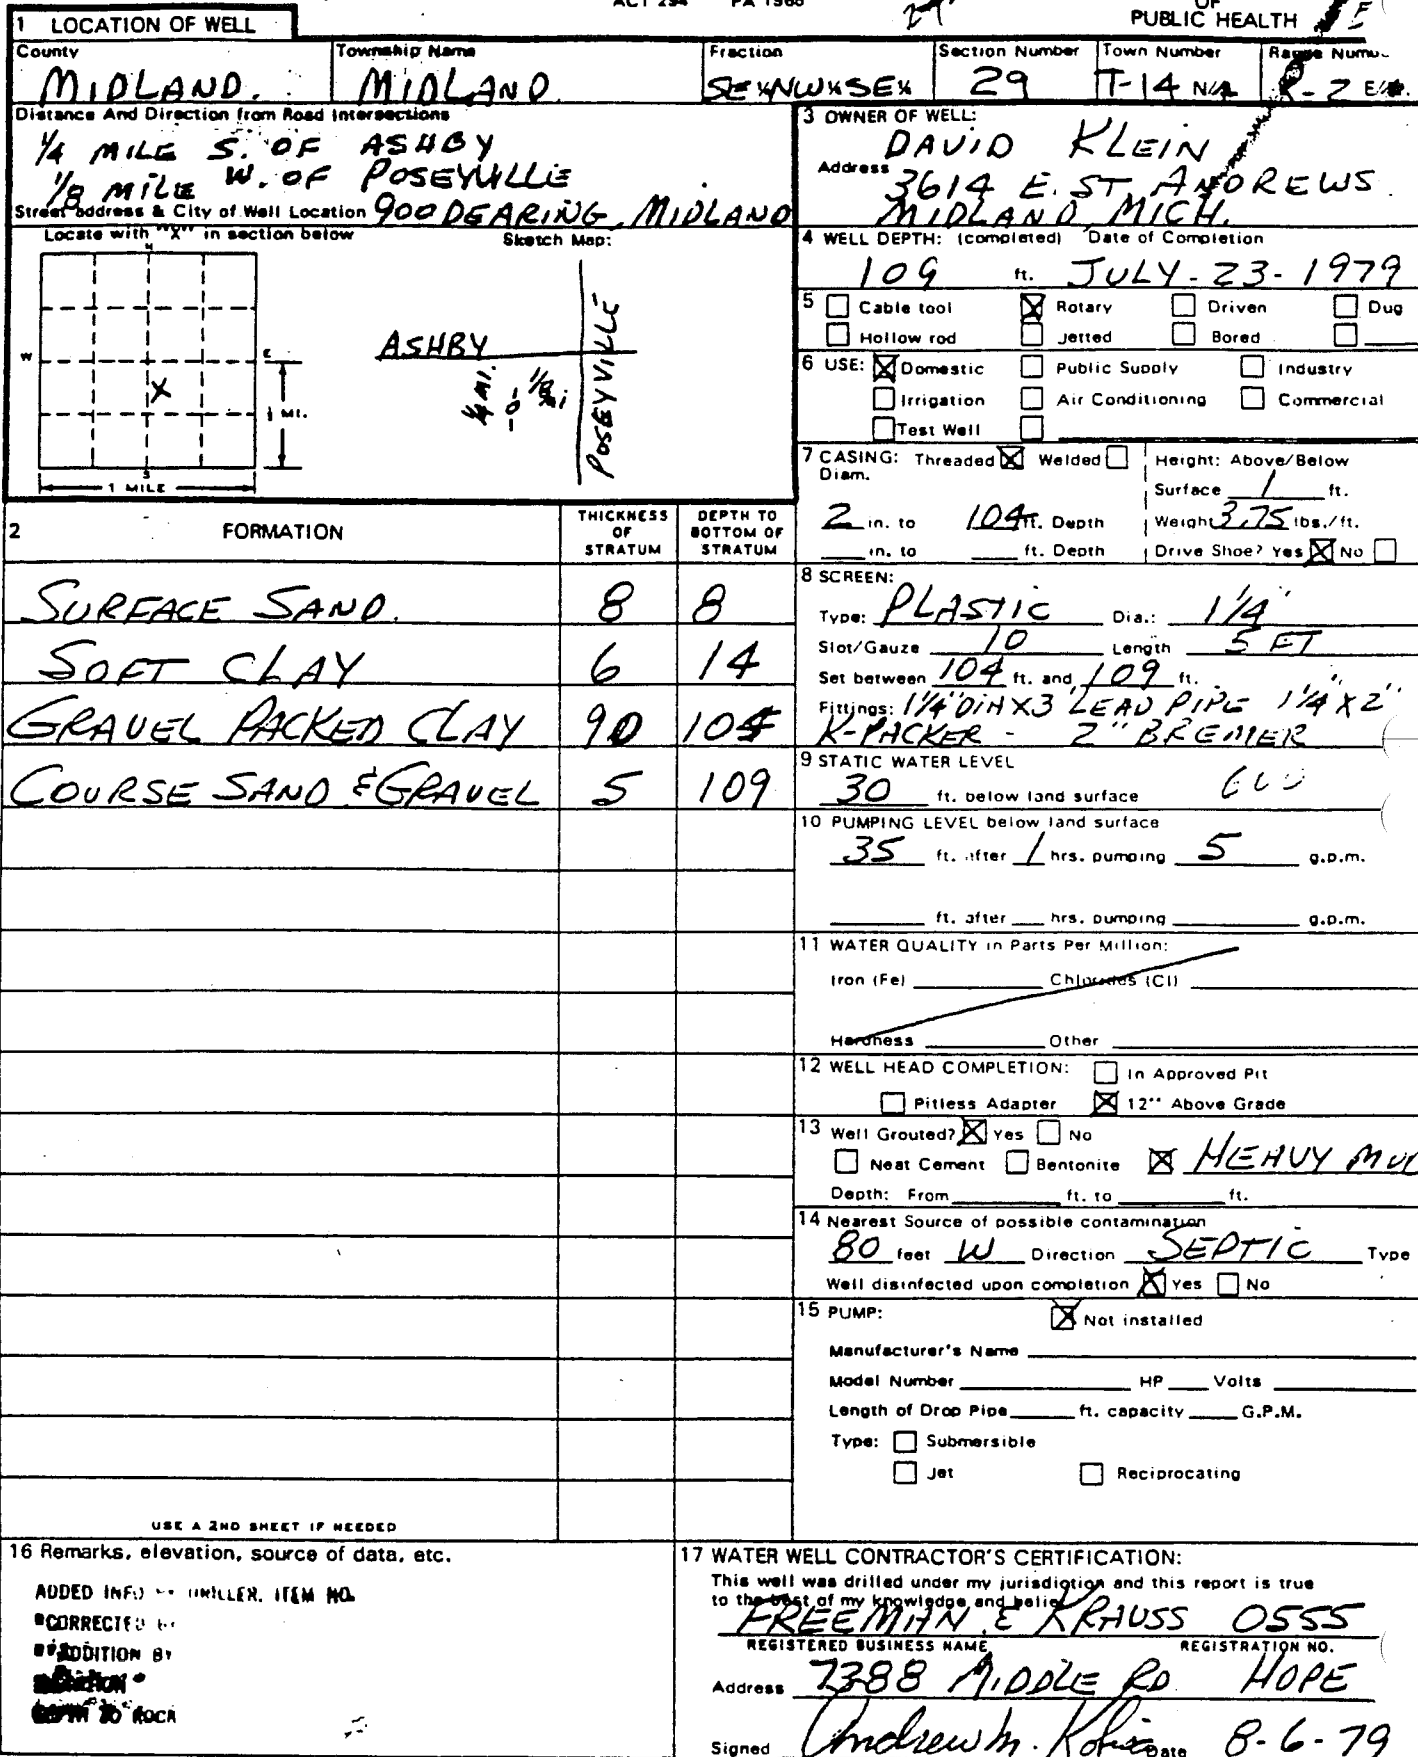 ACT 294 PA 1965
OF
PUBLIC HEALTH
1 LOCATION OF WELL
County Township Name Fraction Section Number Town Number
MIDLAND. MIDLAND SE¼NW¼SE¼ 29 T-14 N/S R-2 E/W.
Distance And Direction from Road Intersections
¼ MILE S. OF ASHBY
⅛ MILE W. OF POSEYVILLE
Street address & City of Well Location 900 DEARING, MIDLAND
Locate with "X" in section below Sketch Map:
N
W E
X
S
½ MI.
1 MILE
ASHBY
¼ MI. ⅛ mi
POSEYVILLE
3 OWNER OF WELL:
DAVID KLEIN
Address 3614 E. ST. ANDREWS
MIDLAND MICH.
4 WELL DEPTH: (completed) Date of Completion
109 ft. JULY-23-1979
5 ☐ Cable tool ☒ Rotary ☐ Driven ☐ Dug
☐ Hollow rod ☐ Jetted ☐ Bored ☐
6 USE: ☒ Domestic ☐ Public Supply ☐ Industry
☐ Irrigation ☐ Air Conditioning ☐ Commercial
☐ Test Well ☐
7 CASING: Threaded ☒ Welded ☐ Height: Above/Below
Diam.
Surface 1 ft.
2 in. to 104 ft. Depth Weight 3.75 lbs./ft.
in. to ft. Depth Drive Shoe? Yes ☒ No ☐
2 FORMATION THICKNESS OF STRATUM DEPTH TO BOTTOM OF STRATUM
SURFACE SAND. 8 8
SOFT CLAY 6 14
GRAVEL PACKED CLAY 90 104
COURSE SAND & GRAVEL 5 109
USE A 2ND SHEET IF NEEDED
8 SCREEN:
Type: PLASTIC Dia.: 1¼"
Slot/Gauze 10 Length 5 FT
Set between 104 ft. and 109 ft.
Fittings: 1¼" DIA X 3' LEAD PIPE 1¼ X 2"
K-PACKER - 2" BREMER
9 STATIC WATER LEVEL
30 ft. below land surface
10 PUMPING LEVEL below land surface
35 ft. after 1 hrs. pumping 5 g.p.m.
ft. after hrs. pumping g.p.m.
11 WATER QUALITY in Parts Per Million:
Iron (Fe) Chlorides (Cl)
Hardness Other
12 WELL HEAD COMPLETION: ☐ In Approved Pit
☐ Pitless Adapter ☒ 12" Above Grade
13 Well Grouted? ☒ Yes ☐ No
☐ Neat Cement ☐ Bentonite ☒ HEAVY MUD
Depth: From ft. to ft.
14 Nearest Source of possible contamination
80 feet W Direction SEPTIC Type
Well disinfected upon completion ☒ Yes ☐ No
15 PUMP: ☒ Not installed
Manufacturer's Name
Model Number HP Volts
Length of Drop Pipe ft. capacity G.P.M.
Type: ☐ Submersible
☐ Jet ☐ Reciprocating
16 Remarks, elevation, source of data, etc.
ADDED INFO DRILLER, ITEM NO.
*CORRECTED BY
**ADDITION BY
TO ROCK
17 WATER WELL CONTRACTOR'S CERTIFICATION:
This well was drilled under my jurisdiction and this report is true
to the best of my knowledge and belief.
FREEMAN & KRAUSS 0555
REGISTERED BUSINESS NAME REGISTRATION NO.
Address 7388 MIDDLE RD HOPE
Signed Andrew M. Date 8-6-79